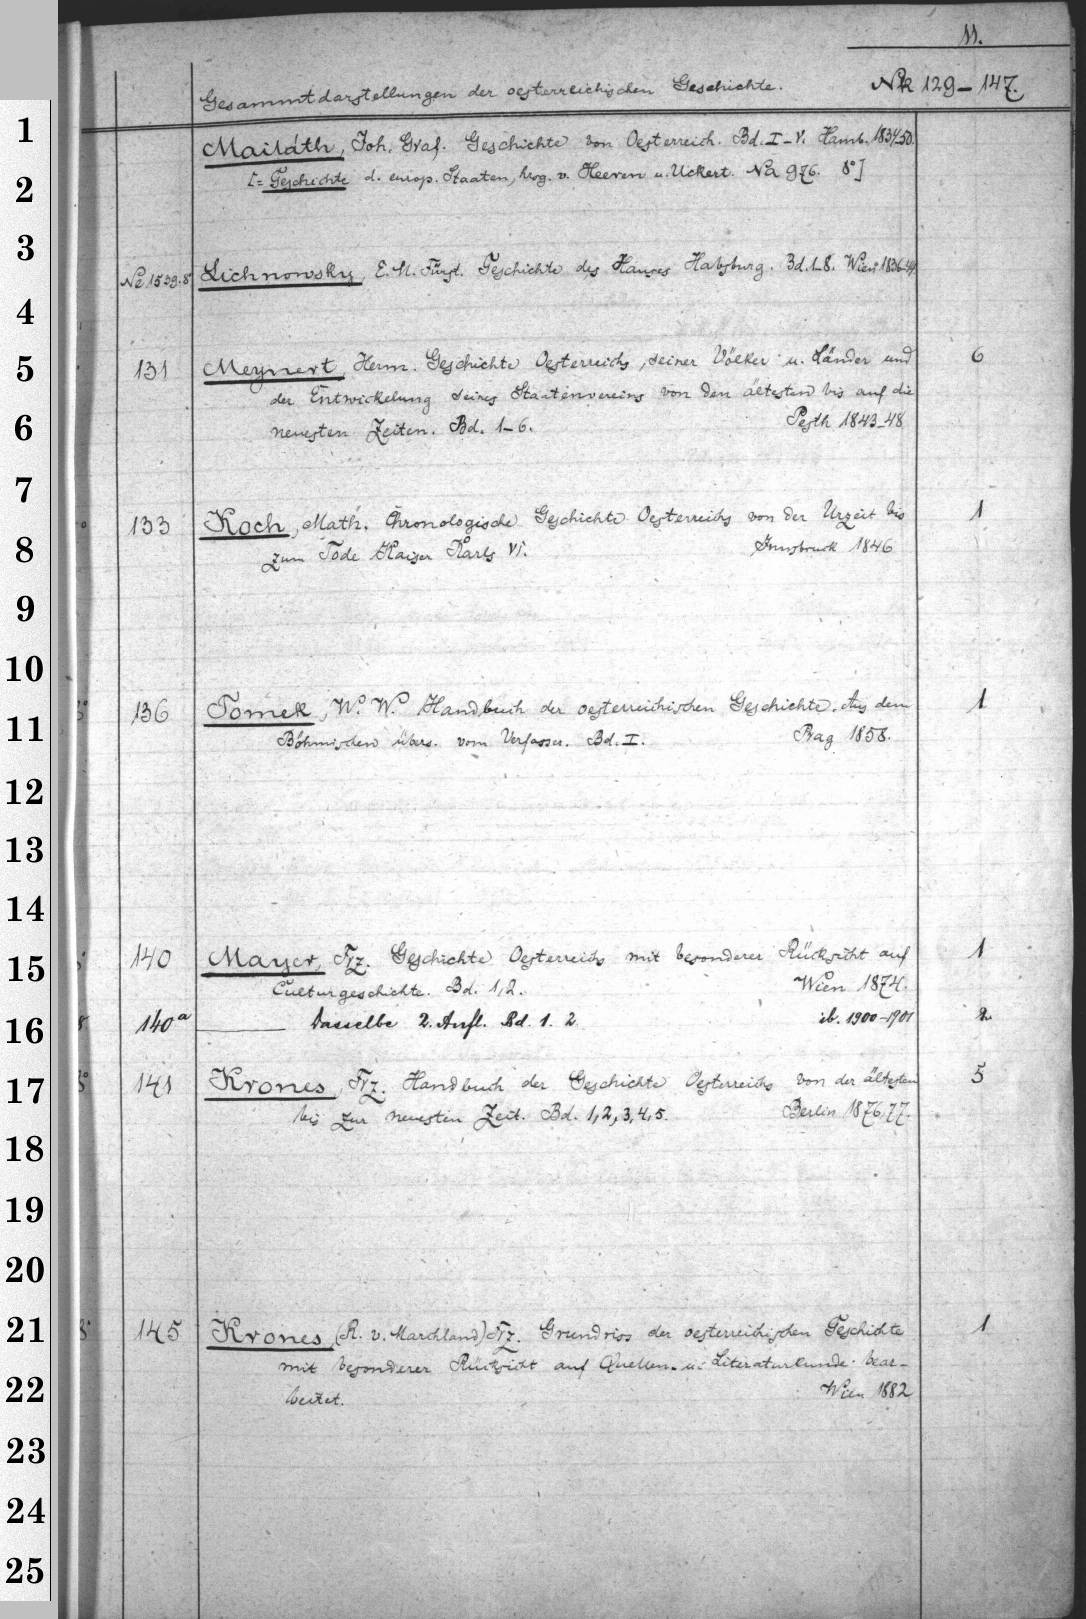 11.
Gesammtdarstellungen der oesterreichischen Geschichte. Nk 129-147.
1
Mailáth, Joh. Graf. Geschichte von Oesterreich. Bd. I-V. Hamb. 1834-50.
2
[= Geschichte d. europ. Staaten, hrsg. v. Heeren u. Uckert. Na 976. 8°]
3
Ne 1539.8° Lichnowsky, E. M. Fürst. Geschichte des Hauses Habsburg. Bd. 1-8. Wien 1836-44.
4
5
131 Meynert, Herm. Geschichte Oesterreichs, seiner Völker u. Länder und 6
der Entwickelung seines Staatenvereins von den ältesten bis auf die
6
neuesten Zeiten. Bd. 1-6. Pesth 1843-48
7
133 Koch, Math. Chronologische Geschichte Oesterreichs von der Urzeit bis 1
8
zum Tode Kaiser Karls VI. Innsbruck 1846
9
10
136 Tomek, W. W. Handbuch der oesterreichischen Geschichte. Aus dem 1
11
Böhmischen übers. vom Verfasser. Bd. I. Prag 1858.
12
13
14
140 Mayer, Frz. Geschichte Oesterreichs mit besonderer Rücksicht auf 1
15
Culturgeschichte. Bd. 1,2. Wien 1874.
16
140a ——— Dasselbe 2. Aufl. Bd. 1. 2. ib. 1900-1901 2
17
141 Krones, Frz. Handbuch der Geschichte Oesterreichs von der ältesten 5
bis zur neuesten Zeit. Bd. 1,2,3,4,5. Berlin 1876,77.
18
19
20
21
145 Krones, (R. v. Marchland) Frz. Grundriss der oesterreichischen Geschichte 1
mit besonderer Rücksicht auf Quellen- u. Literaturkunde bear-
22
beitet. Wien 1882
23
24
25